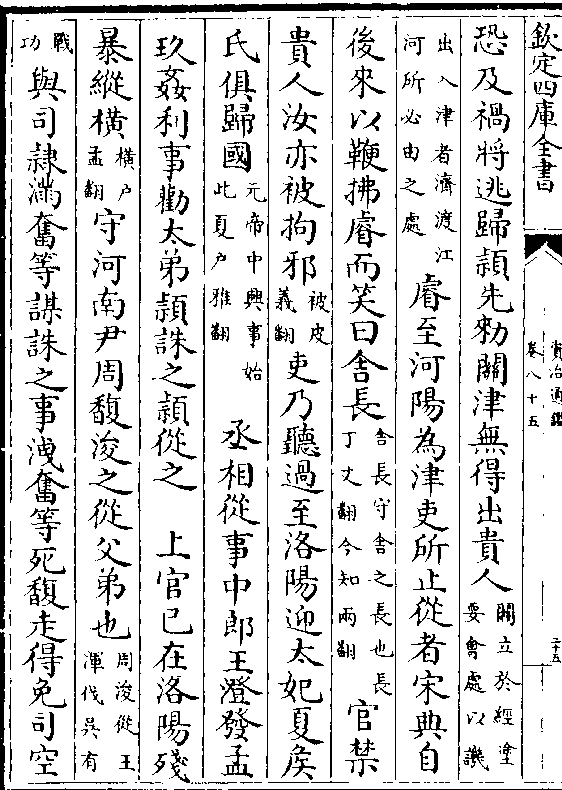 欽定四庫全書
資治通鑑
卷八十五
二十五
恐及禍將逃歸頴先勑關津無得出貴人關立於經塗要會處以譏
出入津者濟渡江河所必由之處睿至河陽為津吏所止從者宋典自
後來以鞭拂睿而笑曰舎長舎長守舎之長也長丁丈翻今知兩翻官禁
貴人汝亦被拘邪被皮義翻吏乃聽過至洛陽迎太妃夏侯
氏俱歸國元帝中興事始此夏户雅翻丞相從事中郎王澄發孟
玖姦利事勸太弟頴誅之頴從之上官已在洛陽殘
暴縱橫橫户孟翻守河南尹周馥浚之從父弟也周浚從王渾伐吳有
戰功與司隸滿奮等謀誅之事洩奮等死馥走得免司空